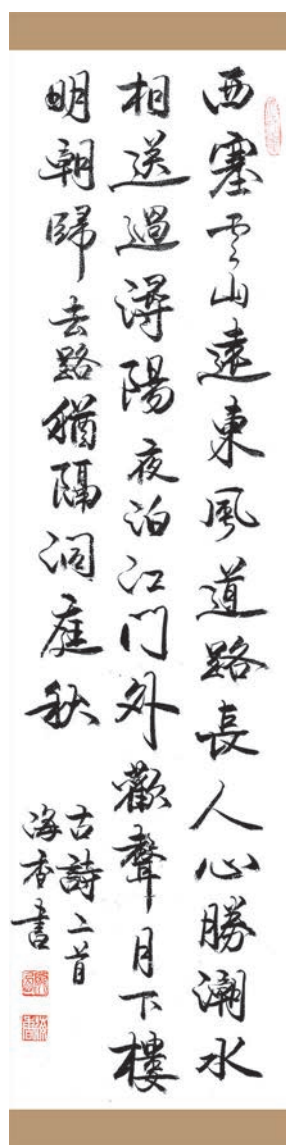 西塞雲山遠東風道路長人心勝潮水
相送過潯陽夜泊江門外歡聲月下樓
明朝歸去路猶隔洞庭秋
古詩二首
海杏書